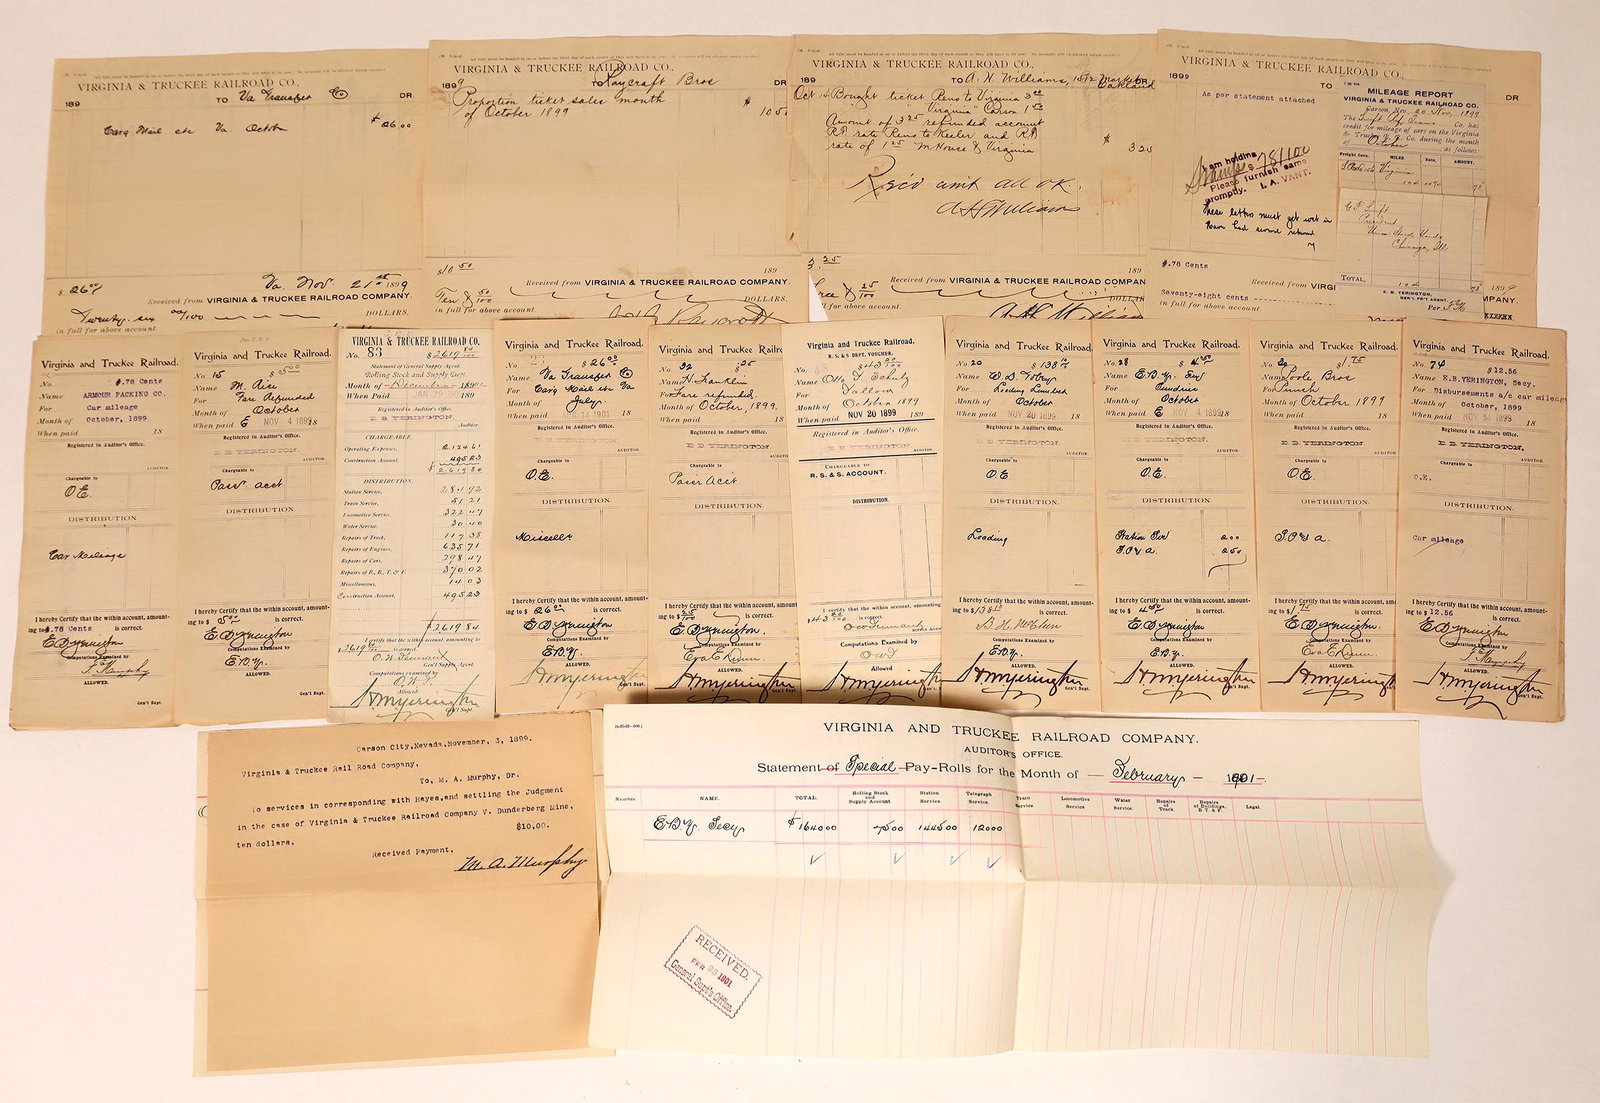 VIRGINIA & TRUCKEE RAILROAD CO.,
189
TO Va Transfer Co DR
Carg Mail etc Va October $26 00
$26 00
Va. Nov. 21st 1899
Received from VIRGINIA & TRUCKEE RAILROAD COMPANY.
Twenty six 00/100 DOLLARS.
in full for above account
VIRGINIA & TRUCKEE RAILROAD CO.,
1899
TO Bros DR
Proportion ticket sales month
of October 1899 $ 10 50
$10 50
189
Received from VIRGINIA & TRUCKEE RAILROAD COMPANY.
Ten & 50/100 DOLLARS.
in full for above account
VIRGINIA & TRUCKEE RAILROAD CO.,
189
TO A. H. Williams, Market Oakland
Oct 14 Bought ticket Reno to Virginia 3 00
" " Virginia " Carson 1 50
Amount of 3 25 refunded account
RT rate Reno to Keeler and RT
rate of 1 25 M House & Virginia $ 3 25
Rec'd amt all OK.
A H Williams
3.25
189
Received from VIRGINIA & TRUCKEE RAILROAD COMPANY.
& 25/100 DOLLARS
full for above account
A H Williams
VIRGINIA & TRUCKEE RAILROAD CO.,
1899
TO DR
As per statement attached
I am holding
Stamps $ 78/100
Please furnish same
promptly. L. A. VANT.
These letters must get wet in
$.78 Cents
Received from VIRGI
Seventy-eight cents
in full for above account
MILEAGE REPORT
VIRGINIA & TRUCKEE RAILROAD CO.
Carson, Nev. 20 Nov, 1899
The Co. has
credit for mileage of cars on the Virginia
& Truckee R. R. Co. during the month
of October as follows:
Freight Cars. MILES Rate. AMOUNT.
Virginia
G F Swift
President
Union Stock Yards
Chicago, Ill
TOTAL,
E. B. YERINGTON,
GEN'L FR'T AGENT.
Per
1899
MPANY.
Virginia and Truckee Railroad.
No. $.78 Cents
Name ARMOUR PACKING CO.
For Car mileage
Month of October, 1899
When paid 18
Registered in Auditor's Office.
AUDITOR.
Chargeable to
O E.
DISTRIBUTION.
Car Mileage
I hereby Certify that the within account, amount-
ing to $.78 Cents is correct.
E B Yerington
Computations Examined by
F. Murphy
ALLOWED.
Gen'l Supt.
Virginia and Truckee Railroad.
No. 15 $5 00
Name M. Rice
For Fare Refunded
Month of October
When paid E NOV 4 1899 18
Registered in Auditor's Office.
E B YERINGTON,
AUDITOR
Chargeable to
Pass' acct
DISTRIBUTION.
I hereby Certify that the within account, amount-
ing to $ 5 00 is correct.
E B Yerington
Computations Examined by
E.B.Y.
ALLOWED.
Gen'l Supt.
VIRGINIA & TRUCKEE RAILROAD CO.
No. 83 $ 2619 84
Statement of General Supply Agent,
Rolling Stock and Supply Dept.
Month of December 1890
When Paid JAN 29 1901 189
Registered in Auditor's Office.
E B YERINGTON
Auditor
CHARGEABLE.
Operating Expenses, 2124.61
Construction Account, 495 23
$ 2619 84
DISTRIBUTION
Station Service, 284 92
Train Service, 51 21
Locomotive Service, 322 47
Water Service, 30 40
Repairs of Track, 117 38
Repairs of Engines, 635 71
Repairs of Cars, 298 47
Repairs of B., B., T. & F. 370 02
Miscellaneous, 14 03
Construction Account, 495 23
$2619 84
I certify that the within account, amounting to
$2619 84 is correct.
Gen'l Supply Agent
Computations examined by
Allowed
H M Yerington
Gen'l Supt.
Virginia and Truckee Railroad.
No. 23 $26 00
Name Va Transfer Co
For Carg Mail etc Va
Month of July
When paid AUG 14 1901 18
Registered in Auditor's Office.
E B YERINGTON,
AUDITOR.
Chargeable to
O.E.
DISTRIBUTION.
Miscelle
I hereby Certify that the within account, amount-
ing to $ 26 00 is correct.
E B Yerington
Computations Examined by
E.B.Y.
ALLOWED.
H M Yerington
Virginia and Truckee Railr
No. 32 $ 25
Name H Franklin
For Fare refunded
Month of October, 1899.
When paid 18
Registered in Auditor's Office.
E B YERINGTON,
AUDITO
Chargeable to
Pass Acct
DISTRIBUTION.
I hereby Certify that the within account, amount-
ing to $ 25/100 is correct.
E B Yerington.
Computations Examined by
Eva E Dunn.
ALLOWED.
H M Yerington
Virginia and Truckee Railroad Co.
R. S. & S DEPT. VOUCHER.
No. $43 20
Name Otto F. Schulz
For Tallow
Month of October 1899
When paid NOV 20 1899
Registered in Auditor's Office.
E B YERINGTON
AUDITOR.
CHARGEABLE TO
R. S. & S. ACCOUNT.
DISTRIBUTION,
I certify that the within account, amounting
to $43 20/100 is correct.
SUPPLY AGENT
Computations Examined by
Allowed
H M Yerington
Gen'l
Virginia and Truckee Railroad.
No. 20 $138 10
Name W. D. Tobey
For Loading Lumber
Month of October
When paid NOV 20 1899 18
Registered in Auditor's Office.
E B YERINGTON.
AUDITOR.
Chargeable to
O. E
DISTRIBUTION.
Loading
I hereby Certify that the within account, amount-
ing to $138 10 is correct.
Computations Examined by
E.B.Y.
ALLOWED.
H M Yerington
Virginia and Truckee Railroad.
No. 28 $ 4 50
Name E.B.Y. Secy
For Sundries
Month of October
When paid E NOV 4 1899 18
Registered in Auditor's Office.
E B YERINGTON.
AUDITOR
Chargeable to
O.E.
DISTRIBUTION.
Station Ser 2 00
S.O & a. 2 50
I hereby Certify that the within account, amount-
ing to $ 4 50 is correct.
E B Yerington
Computations Examined by
E.B.Y.
ALLOWED.
H M Yerington
Virginia and Truckee Railroad.
No. 26 $ 1.75
Name Poole Bros
For Punch
Month of October 1899
When paid 18
Registered in Auditor's Office.
E B YERINGTON.
AUDITOR
Chargeable to
O.E.
DISTRIBUTION.
S.O & a.
I hereby Certify that the within account, amount-
ing to $ 1 75 is correct.
E B Yerington
Computations Examined by
Eva E Dunn.
ALLOWED.
H M Yerington
Gen'l Supt.
Virginia and Truckee Railroad.
No. 74 $12.56
Name E.B.YERINGTON, Secy.
For Disbursements a/c car mileage
Month of October, 1899
When paid NOV 24 1899 18
Registered in Auditor's Office.
E B YERINGTON,
AUDITOR
Chargeable to
O.E.
DISTRIBUTION.
Car mileage
I hereby Certify that the within account, amount-
ing to $ 12.56 is correct.
E B Yerington
Computations Examined by
F. Murphy
ALLOWED.
H M Yerington
Gen'l Supt.
Carson City, Nevada, November, 3, 1899.
Virginia & Truckee Rail Road Company,
To, M. A. Murphy, Dr.
To services in corresponding with Hayes, and settling the Judgment
in the case of Virginia & Truckee Railroad Company V. Dunderberg Mine,
ten dollars. $10.00.
Received Payment,
M. A. Murphy
VIRGINIA AND TRUCKEE RAILROAD COMPANY.
AUDITOR'S OFFICE.
Statement of Special Pay-Rolls for the Month of February 1901
Number. NAME. TOTAL. Rolling Stock and Supply Account Station Service Telegraph Service. Train Service. Locomotive Service Water Service Repairs of Track. Repairs of Buildings, B T & F. Legal.
E.B.Y. Secy $164000 7500 144500 12000
RECEIVED.
FEB 28 1901
General Supt's Office.